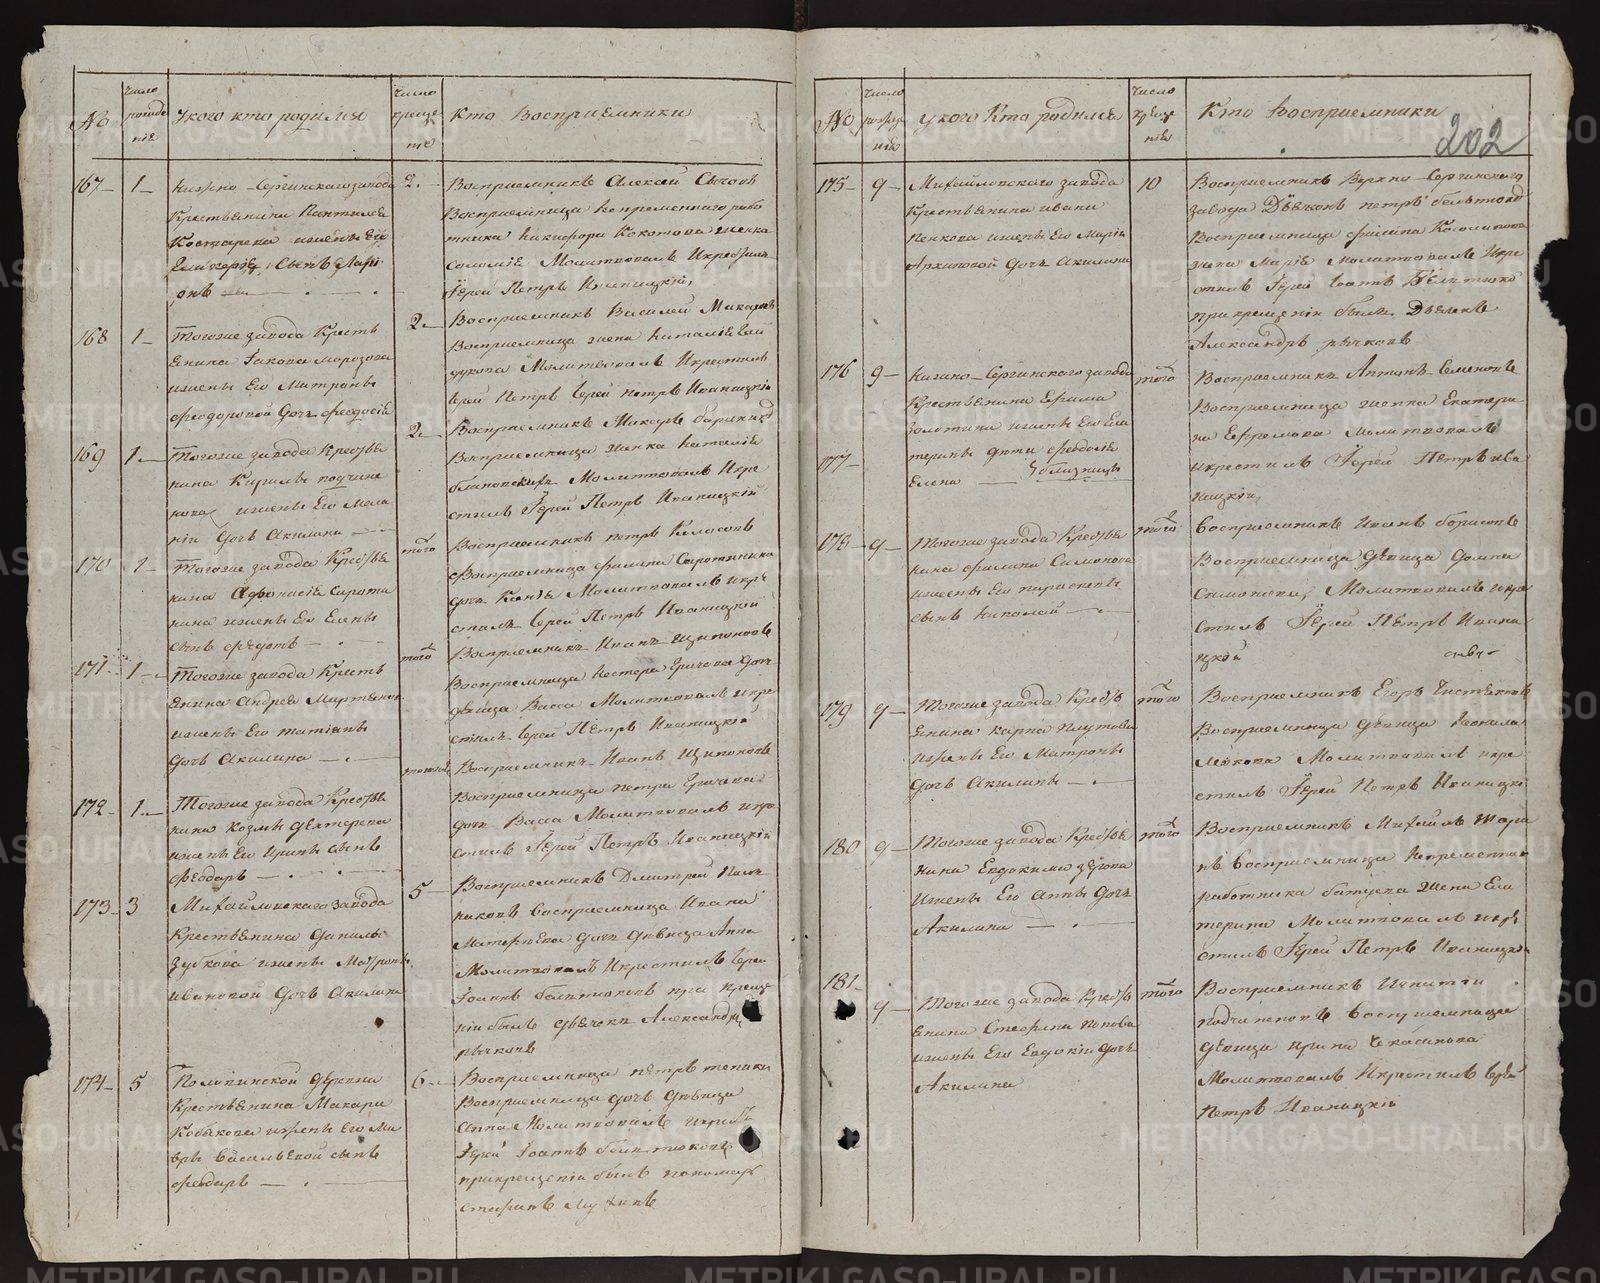 №
число рожде нія
У кого кто родился
число креще нія
Кто Восприемники
167 1
Нижно-Сергинскаго завода
Крестьянина
Костарева жены Его
Гликеріи Сынъ Лари
онъ
2.
Восприемникъ Алексей Сычовъ
Восприемница Непременнаго рабо
тника Никифора Кокотова женка
Соломія Молитвовалъ Икрестилъ
Іерей Петръ Иваницкій
168 1
Тогоже завода Кресть
янина Іакова Морозова
жены Его Матроны
Феодоровой Дочь Феодосія
2
Восприемникъ Василей Макаровъ
Восприемница жена Наталія
Молитвовалъ Икрестилъ
Іерей Петръ Іерей Петръ Иваницкій
169 1
Тогоже завода Крестья
нина Кирилы подчине
нова жены Его Мела
ніи Дочь Акилина
2
Восприемникъ
Восприемница женка Наталія
Молитвовалъ Икре
стилъ Іерей Петръ Иваницкій
170 1
Тогоже завода Крестья
нина Афонасія Сироти
нина жены Его Елены
сынъ Федотъ
того
Восприемникъ петръ Колосовъ
Восприемница Филипа Сиротинина
дочь Молитвовалъ икре
стилъ Іерей Петръ Иваницкій
171 1
Тогоже завода Кресть
янина Андрея Мартьянова
жены Его татіаны
дочь Акилина
того
Восприемникъ Иванъ Щипоновъ
Восприемница Нестера Ерычева Дочь
девица Васса Молитвовалъ икре
стилъ Іерей Петръ Иваницкій
172 1
Тогоже завода Крестья
нина Козмы Дехтерева
жены Его Ирины сынъ
Феодоръ
Восприемникъ Иванъ Щипоновъ
Восприемница петра Ерычева
дочь Васса Молитвовалъ икре
стилъ Іерей Петръ Иваницкій
173 3
Михайловскаго завода
Крестьянина Данилы
Зубкова жены Матроны
Ивановой Дочь Акилина
5
Восприемникъ Дмитрей
Восприемница Ивана
Матфѣева дочь девица Анна
Молитвовалъ Икрестилъ Іерей
Іоаннъ Бельтюковъ при креще
ніи былъ дьячокъ Александръ
рычковъ
174 5
деревни
Крестьянина Макара
Кобякова жены Его Ма
вры Васильевой сынъ
Феодоръ
6
Восприемница петръ
Восприемница дочь девица
Анна Молитвовалъ икрест
Іерей Іоаннъ Бельтюковъ
прикрещеніи былъ пономарь
№
число рожде нія
у кого Кто родился
число креще нія
Кто Восприемники
202
175 9
Михайловского завода
Крестьянина ивана
Пенкова жены Его Маріи
Архиповой Дочь Акилина
10
Восприемникъ Верхно-Сергинскаго
завода Дьячокъ петръ Бельтюковъ
Восприемница Филипа Косолапова
жена Марія Молитвовалъ Икре
стилъ Іерей Іоаннъ Бельтюковъ
прикрещеніи былъ Дьячекъ
Александръ рычковъ
176 9
Нижно-Сергинскаго завода
Крестьянина Ефима
Золотина жены Его Ека
терины дети Феодосія
177
Елена близницы
того
Восприемникъ Антонъ Семеновъ
Восприемница женка Екатери
на Ефремова Молитвовалъ
икрестилъ Іерей Петръ Ива
ницкій
178 9
Тогоже завода Крестья
нина Филипа Симонова
жены Его параскевы
сынъ Николай
того
Восприемникъ Иванъ Борисовъ
Восприемница девица Домна
Симонова, Молитвовалъ икре
стилъ Іерей Петръ Ивани
цкой
179 9
Тогоже завода Кресть
янина карпа Плутова
жены Его Матроны
дочь Акилина
того
Восприемникъ Егоръ Чистяковъ
Восприемница девица Неонила
Молитвовалъ икре
стилъ Іерей Петръ Иваницкій
180 9
Тогоже завода Крестья
нина Евдокима
жены Его Анны дочь
Акилина
того
Восприемникъ Михайлъ
Восприемница Непременнаго
работника жена Ека
терина Молитвовалъ икре
стилъ Іерей Петръ Иваницкій
181 9
Тогоже завода Кресть
янина Стефана Попова
жены Его Евдокіи дочь
Акилина
того
Восприемникъ Игнатій
подчиненовъ Восприемница
девица ирина
Молитвовалъ Икрестилъ Іерей
Петръ Иваницкій